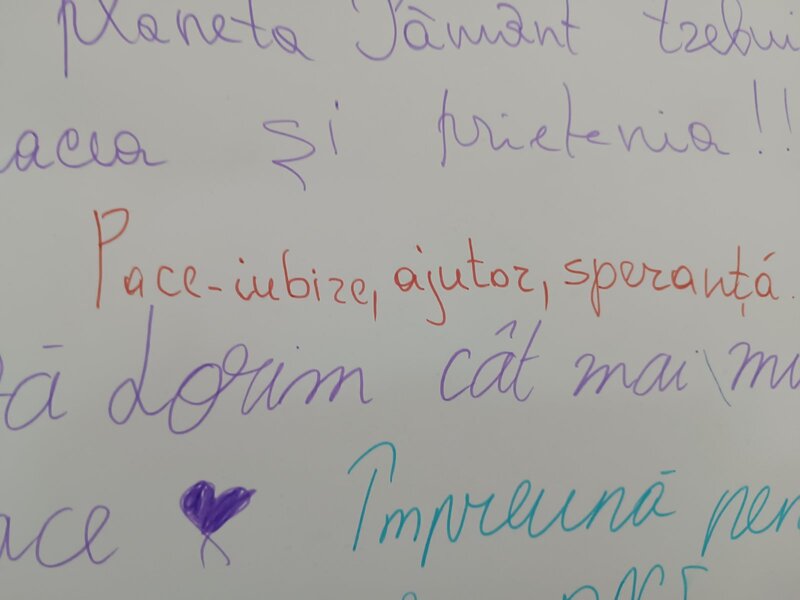 planeta Pământ trebui
acea și prietenia!!
Pace-iubire, ajutor, speranță.
ă dorim cât mai mu
ace
Împreună pen
pace